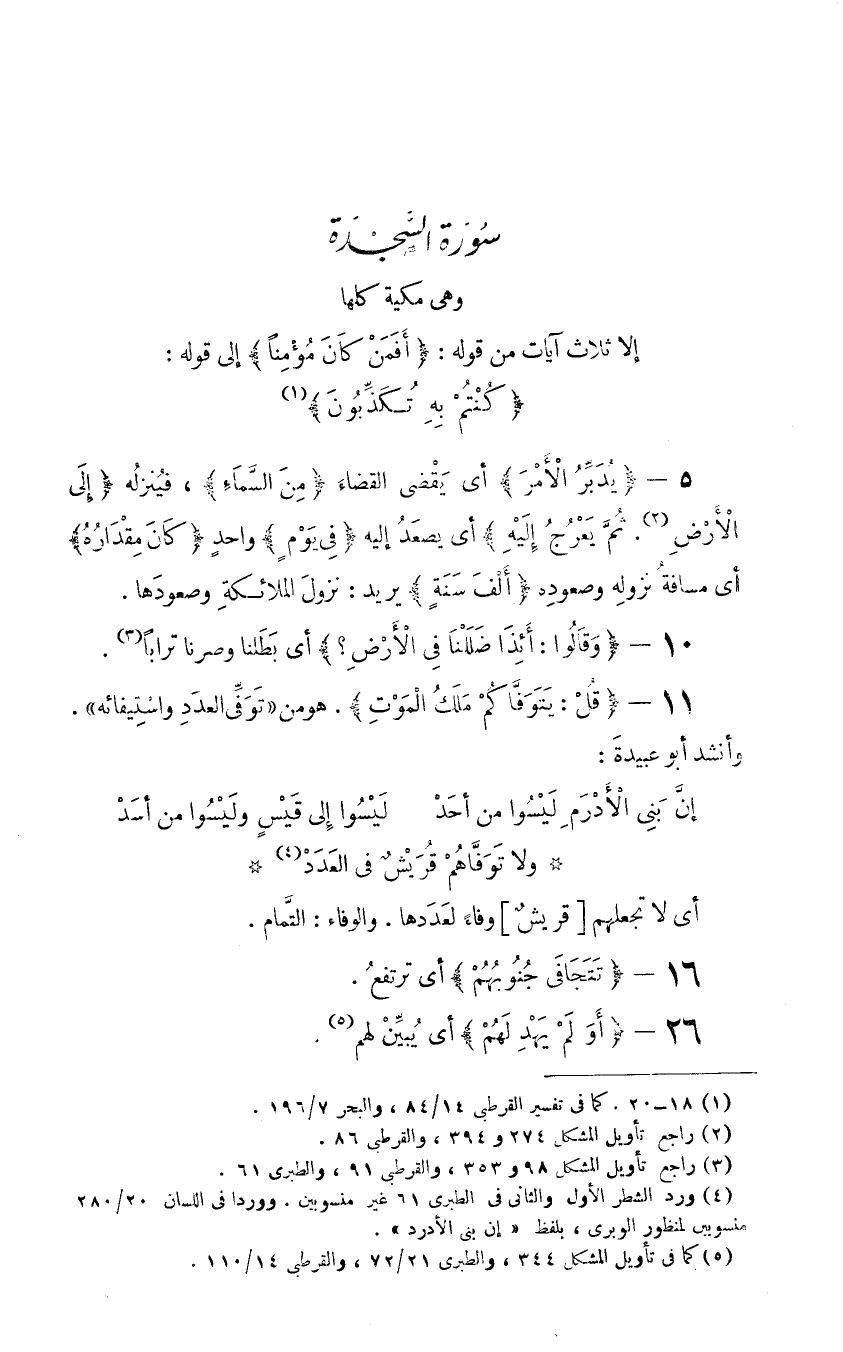 سُورَة السَّجْدَة
وهى مكية كلها
إلا ثلاث آيات من قوله : ﴿ أَفَمَنْ كَانَ مُؤْمِناً ﴾ إلى قوله :
﴿ كُنْتُمْ بِهِ تُكَذِّبُونَ ﴾(١)
٥ – ﴿ يُدَبِّرُ الْأَمْرَ ﴾ أى يَقْضى القضاءَ ﴿ مِنَ السَّمَاءِ ﴾ ، فيُنزلُه ﴿ إِلَى
الْأَرْضِ(٢). ثُمَّ يَعْرُجُ إِلَيْهِ ﴾ أى يصعَدُ إليه ﴿ فِى يَوْمٍ ﴾ واحدٍ ﴿ كَانَ مِقْدَارُهُ ﴾
أى مسافةُ نزولِه وصعودِه ﴿ أَلْفَ سَنَةٍ ﴾ يريد : نزولَ الملائكةِ وصعودَها .
١٠ – ﴿ وَقَالُوا : أَئِذَا ضَلَلْنَا فِى الْأَرْضِ ؟ ﴾ أى بَطَلنا وصرنا تراباً(٣) .
١١ – ﴿ قُلْ : يَتَوَفَّاكُمْ مَلَكُ الْمَوْتِ ﴾ . هو من «تَوَفِّى العدَدِ واسْتِيفائه» .
وأنشد أبو عبيدةَ :
إنَّ بَنِى الْأَدْرَمِ لَيْسُوا من أحَدْ لَيْسُوا إلى قَيْسٍ ولَيْسُوا من أسَدْ
* ولا تَوَفَّاهُمْ قُرَيْشٌ فى العَدَدْ(٤) *
أى لا تجعلهم [ قريشٌ ] وفاءً لعَدَدها . والوفاء : التَّمام .
١٦ – ﴿ تَتَجَافَى جُنُوبُهُمْ ﴾ أى ترتفعُ .
٢٦ – ﴿ أَوَ لَمْ يَهْدِ لَهُمْ ﴾ أى يُبيِّنْ لهم(٥) .
(١) ١٨–٢٠ . كما فى تفسير القرطبى ٨٤/١٤ ، والبحر ١٩٦/٧ .
(٢) راجع تأويل المشكل ٢٧٤ و ٣٩٤ ، والقرطبى ٨٦ .
(٣) راجع تأويل المشكل ٩٨ و ٣٥٣ ، والقرطبى ٩١ ، والطبرى ٦١ .
(٤) ورد الشطر الأول والثانى فى الطبرى ٦١ غير منسوبين . ووردا فى اللسان ٢٨٠/٢٠
منسوبين لمنظور الوبرى ، بلفظ « إن بنى الأدرد » .
(٥) كما فى تأويل المشكل ٣٤٤ ، والطبرى ٧٢/٢١ ، والقرطبى ١١٠/١٤ .